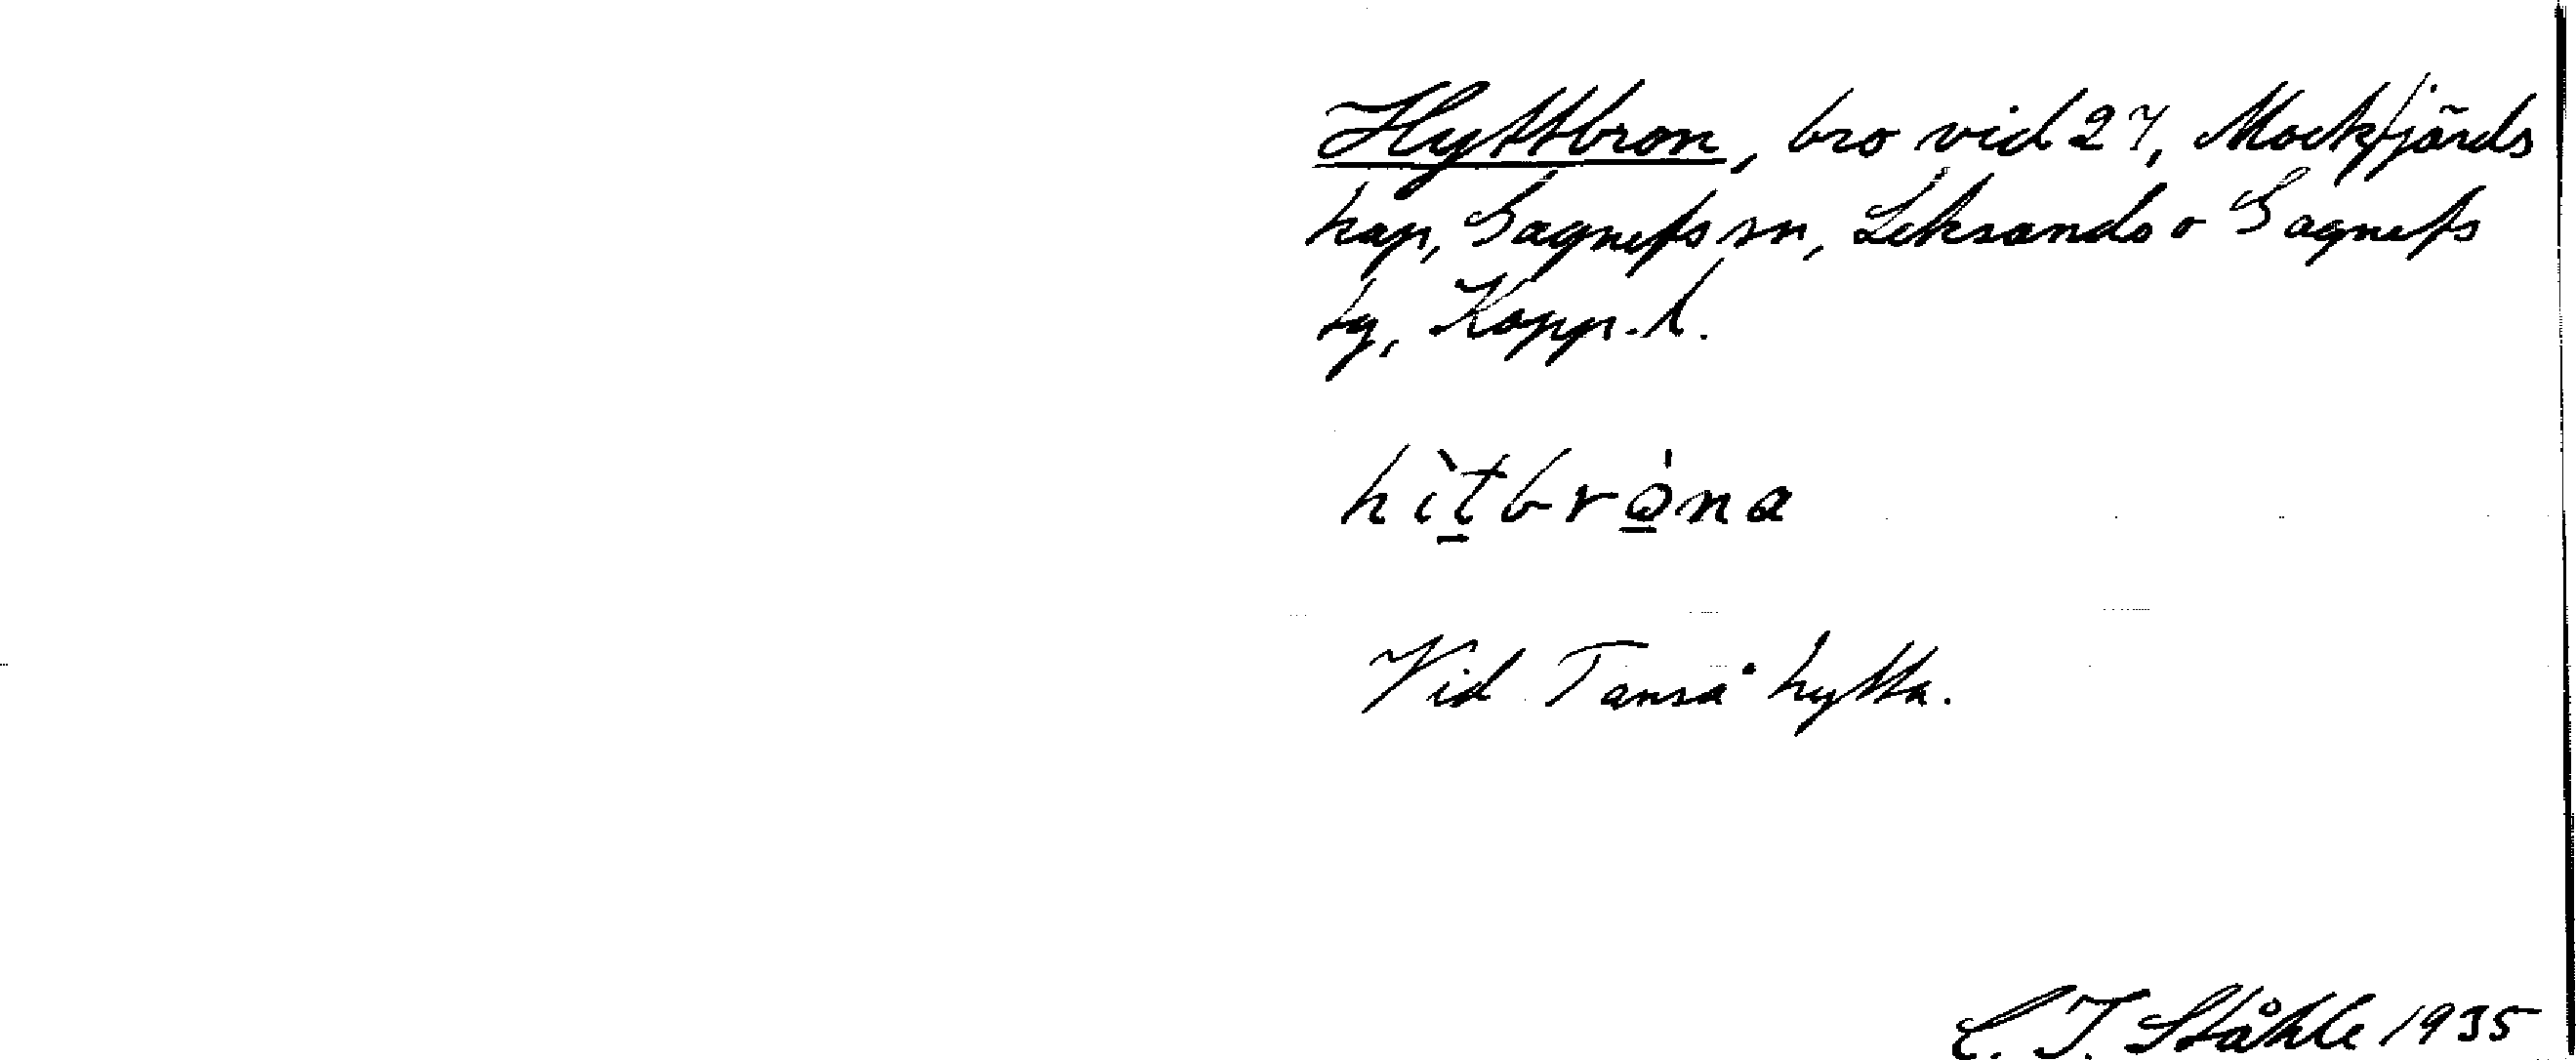 Hyttbron, bro vid 27, Mockfjärds
kap, Gagnefs sn, Leksands o Gagnefs
tg, Kopp. l.
hìt̲brò̲na
Vid Tanså hytta.
C. I. Ståhle 1935